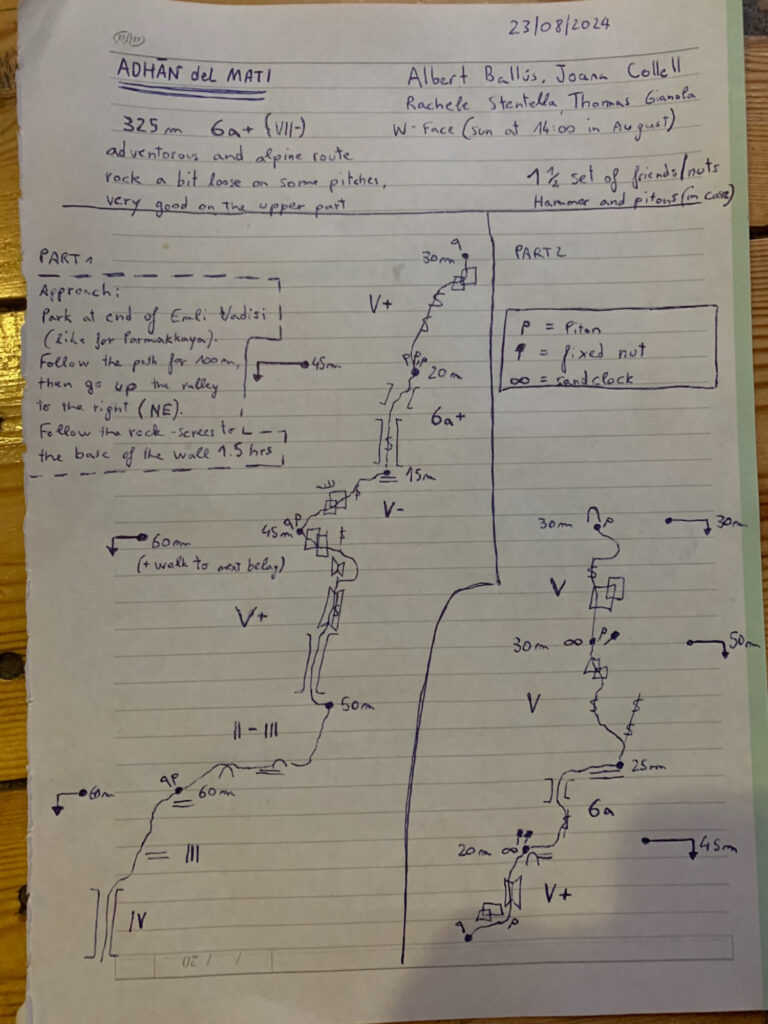 23/08/2024
ADHĀN del MATI
Albert Ballús, Joana Collell
Rachele Stentella, Thomas Gianola
325m 6a+ (VII-)
W-Face (sun at 14:00 in August)
adventorous and alpine route
rock a bit loose on some pitches,
very good on the upper part
1 1/2 set of friends/nuts
Hammer and pitons (in case)
PART 1
Approach:
Park at end of Emli Vadisi
(like for Parmakkaya).
Follow the path for 100m,
then go up the valley
to the right (NE).
Follow the rock-screes to
the base of the wall 1.5 hrs
30m
V+
45m
20m
6a+
15m
V-
45m
60m
(+ walk to next belay)
V+
50m
II-III
60m
60m
III
IV
PART 2
P = Piton
= fixed nut
∞ = sandclock
30m
30m
V
30m ∞
50m
V
25m
6a
20m ∞
45m
V+
/ / 20